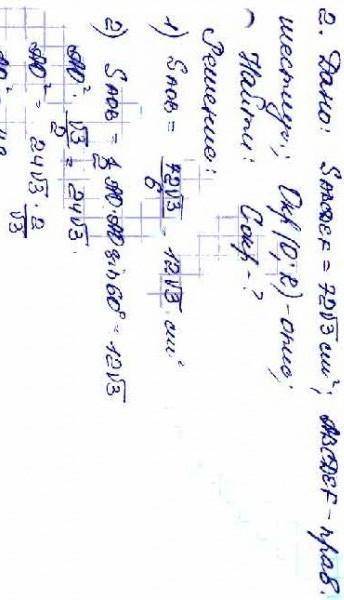 2. Дано: SABCDEF = 72√3 см²; ABCDEF – прав.
шестиуг; Окр(O;R) – опис;
Найти: Cокр - ?
Решение:
1) SAOB = 72√3/6 = 12√3 см²
2) SAOB = 1/2 AO·AO sin60° = 12√3
AO²·√3/2 = 24√3.
AO² = 24√3·2/√3
AO²